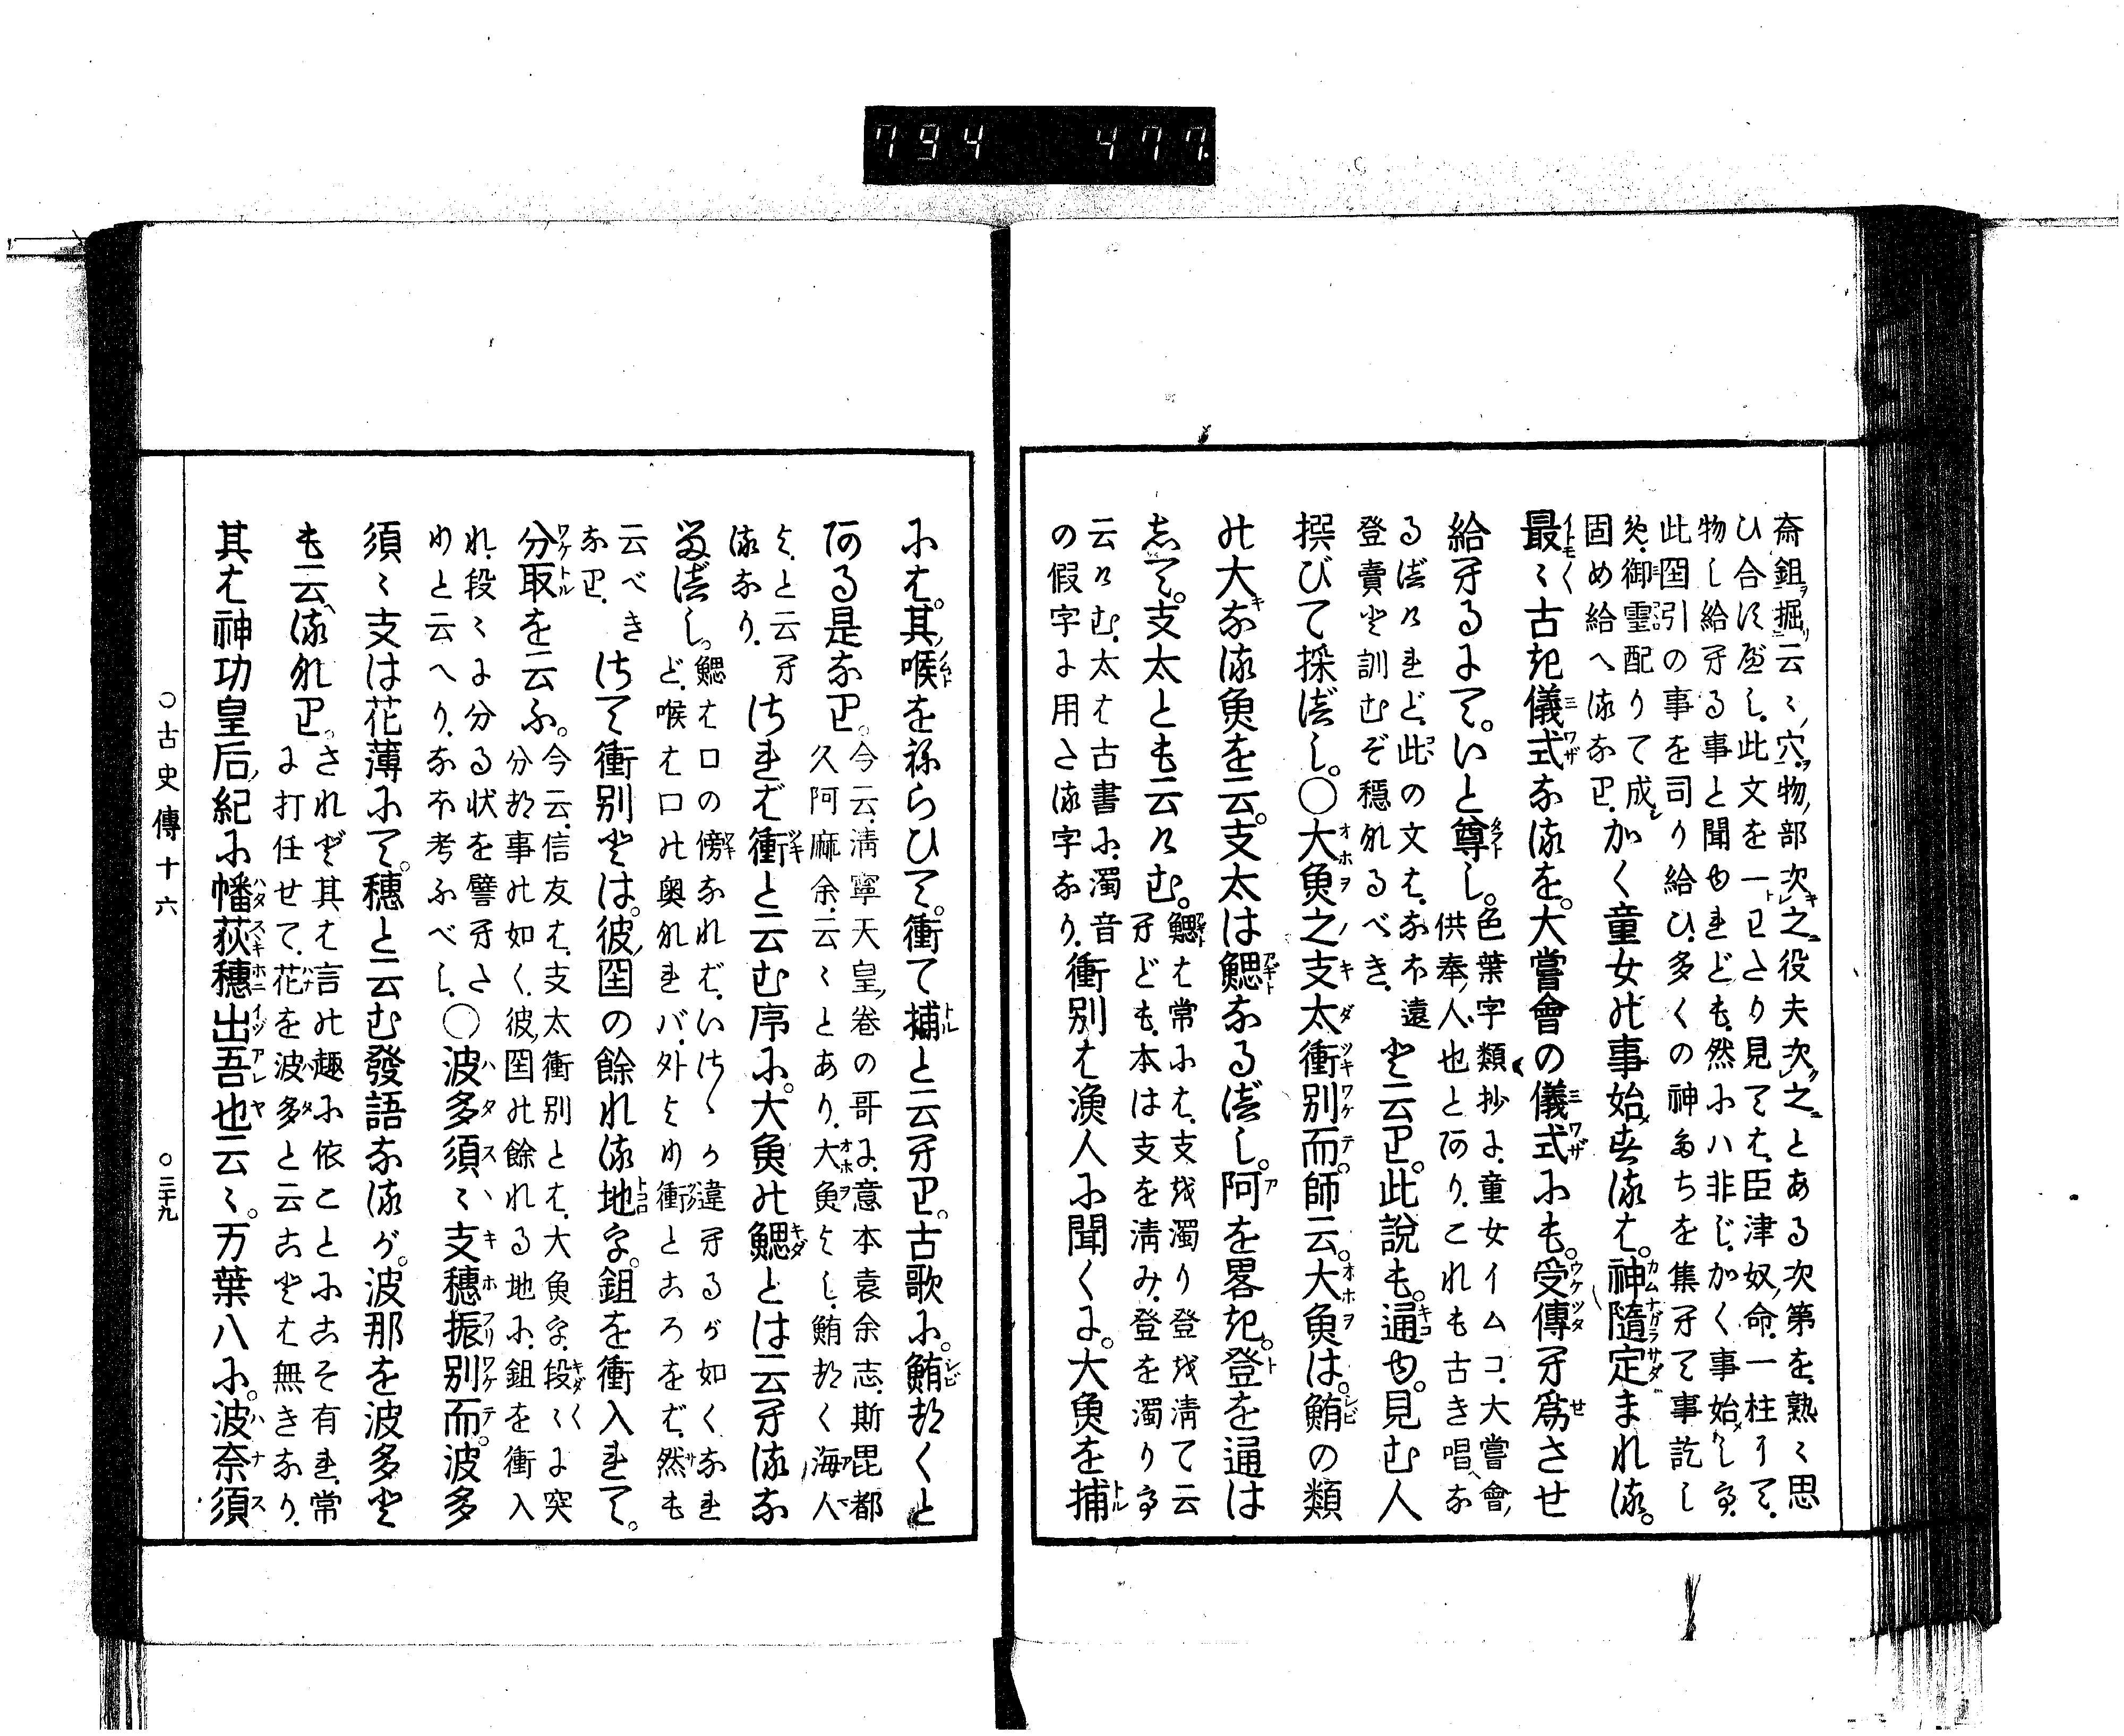 794 477
斎鉏掘云〻、穴物部次之役夫次之とある次第を、熟〻思
ひ合は次べし、此文を一ワたり見ては、臣津奴命一柱して、
物し給へる事と聞ゆれども、然にハ非じ、かく事始めしめ、
此国引の事を司り給ひ、多くの神たちを集へて事訖し
め、御霊配りて成し
固め給へるなり、かく童女の事始まるは。神隨定まれる。
最〻古き儀式なるを。大嘗會の儀式にも。受傳へ爲させ
給へるよて。いと尊し。色葉字類抄よ、童女イムコ、大嘗會、
供奉人也とあり、これも古き唱へな
るべけれど、此の文は、なお遠
登賣と訓むぞ穏なるべき、と云り。此説も。通ゆ。見む人
撰びて採べし。○大魚之支太衝別而。師云。大魚は。鮪の類
の大なる魚を云。支太は鰓なるべし。阿を畧き。登を通は
して。支太とも云けむ。鰓は常には、支を濁り登を清て云
へども、本は支を清み、登を濁りて
云けむ、太は古書に、濁音
の假字よ用たる字なり、衝別は漁人に聞くよ。大魚を捕
には。其喉をねらひて。衝て捕と云へり。古歌に。鮪つくと
ある是なり。今云、淸寧天皇巻の哥よ、意本袁余志、斯毘都
久阿麻余、云〻とあり、大魚よし、鮪つく海人
よ、と云へ
るなり、されば衝と云む序に。大魚の鰓とは云へるな
るべし。鰓は口の傍なれば、いさゝか違へるが如くなれ
ど、喉は口の奥なれバ、外より衝ところをば、然も
云べき
なり、さて衝別とは。彼国の餘れる地を。鉏を衝入れて。
分取を云ふ。今云、信友は、支太衝別とは、大魚を、段〻よ突
分つ事の如く、彼国の餘れる地に、鉏を衝入
れ、段〻よ分る状を譬へた
りと云へり、なお考ふべし、○波多須〻支穗振別而。波多
須〻支は花薄にて。穗と云む發語なるが。波那を波多と
も云るなり。されど其は言の趣に依ことにこそ有れ、常
よ打任せて、花を波多と云ことは無きなり、
其は神功皇后紀に幡荻穗出吾也云〻。万葉八に。波奈須
○古史傳十六 ○三十九